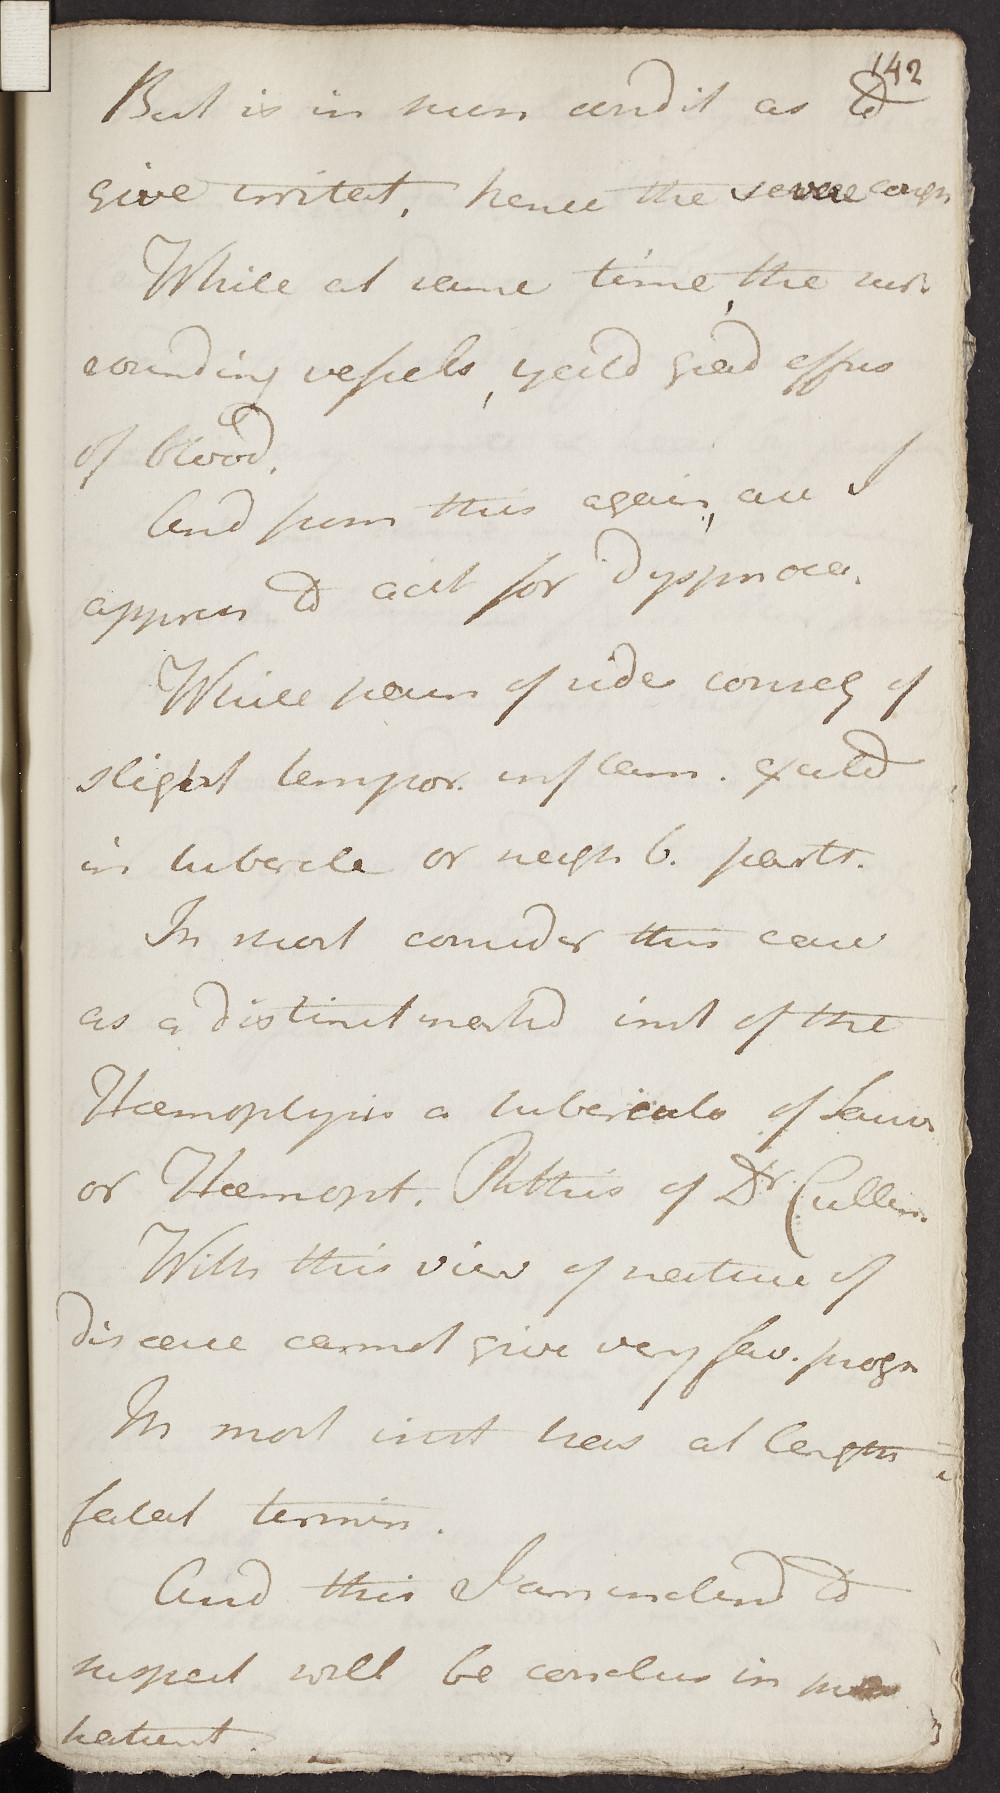 142
But is in such condit as to
give irritat, hence the severe cough
While at same time, the sur-
rounding vessels, yeild grad effus
of blood.
And from this again, are I
appren to acct for dyspnoea.
While pain of side conseq of
slight tempor. inflam. excitd
in tubercle or neighb. parts.
In short consider this case
as a distinct markd inst of the
Hæmoptysis a tuberculo of Sauv
or Hæmopt. Phthis of Dr. Cullen.
With this view of nature of
disease cannot give very fav. progn
In most inst has at length
fatal termin.
And this I am inclind to
suspect will be conclus in
patient.